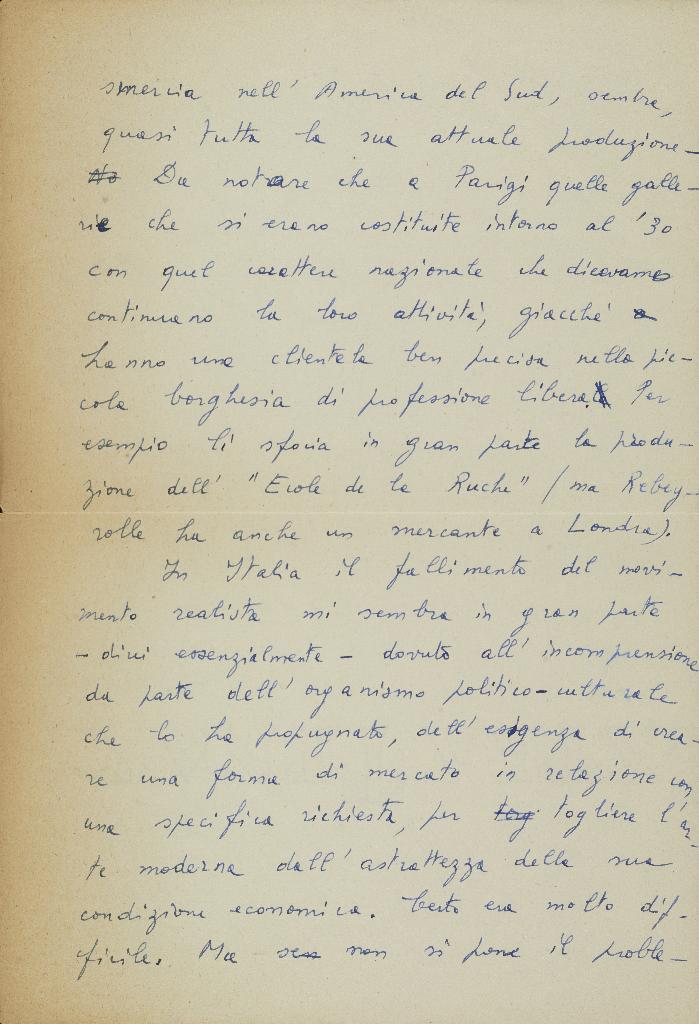 smercia nell' America del Sud, sembra,
quasi tutta la sua attuale produzione –
No Da notare che a Parigi quelle galle–
rie che si erano costituite intorno al '30
con quel carattere nazionale che dicevamo
continuano la loro attività, giacché
hanno una clientela ben precisa nella pic–
cola borghesia di professione liberale Per
esempio lì sfocia in gran parte la produ–
zione dell' "Ecole de la Ruche" (ma Rebey–
rolle ha anche un mercante a Londra).
In Italia il fallimento del movi–
mento realista mi sembra in gran parte
– direi essenzialmente – dovuto all' incomprensione
da parte dell' organismo politico–culturale
che lo ha propugnato, dell' esigenza di crea–
re una forma di mercato in relazione con
una specifica richiesta, per togliere l'ar–
te moderna dall' astrattezza della sua
condizione economica. Certo era molto dif–
ficile. Ma se non si pone il proble–